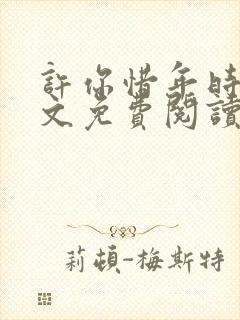 許你惜年時
文免費閱讀
莉頓-梅斯特